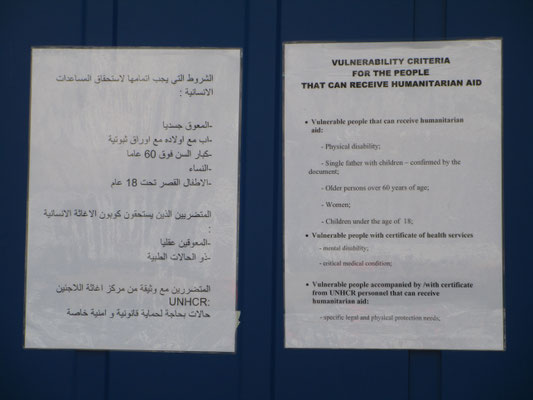 الشروط التي يجب اتمامها لاستحقاق المساعدات
الانسانية :
-المعوق جسديا
-اب مع اولاده مع اوراق ثبوتية
-كبار السن فوق 60 عاما
-النساء
-الاطفال القصر تحت 18 عام
المتضررين الذين يستحقون كوبون الاغاثة الانسانية
:
-المعوقين عقليا
-ذو الحالات الطبية
المتضررين مع وثيقة من مركز اغاثة اللاجئين
UNHCR:
حالات بحاجة لحماية قانونية و امنية خاصة
VULNERABILITY CRITERIA
FOR THE PEOPLE
THAT CAN RECEIVE HUMANITARIAN AID
• Vulnerable people that can receive humanitarian
aid:
- Physical disability;
- Single father with children – confirmed by the
document;
- Older persons over 60 years of age;
- Women;
- Children under the age of 18;
• Vulnerable people with certificate of health services
- mental disibility;
- critical medical condition;
• Vulnerable people accompanied by /with certificate
from UNHCR personnel that can receive
humanitarian aid:
- specific legal and physical protection needs;